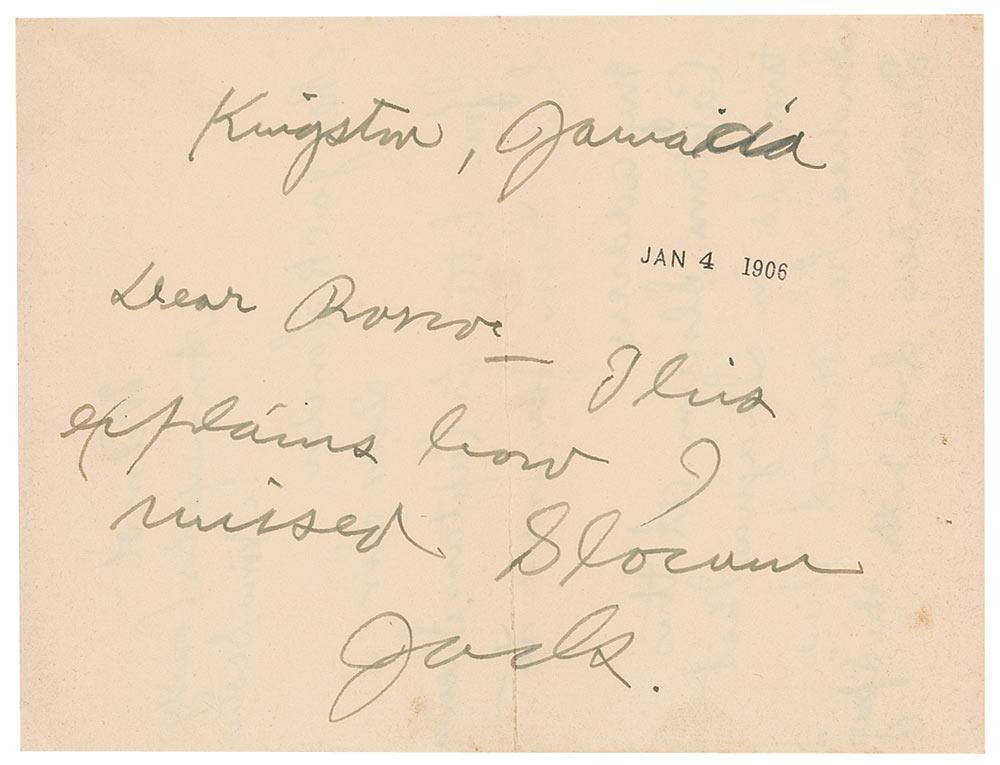 Kingston, Jamaica
JAN 4 1906
Dear Roscoe — This
explains how I
missed Slocum
Jack.